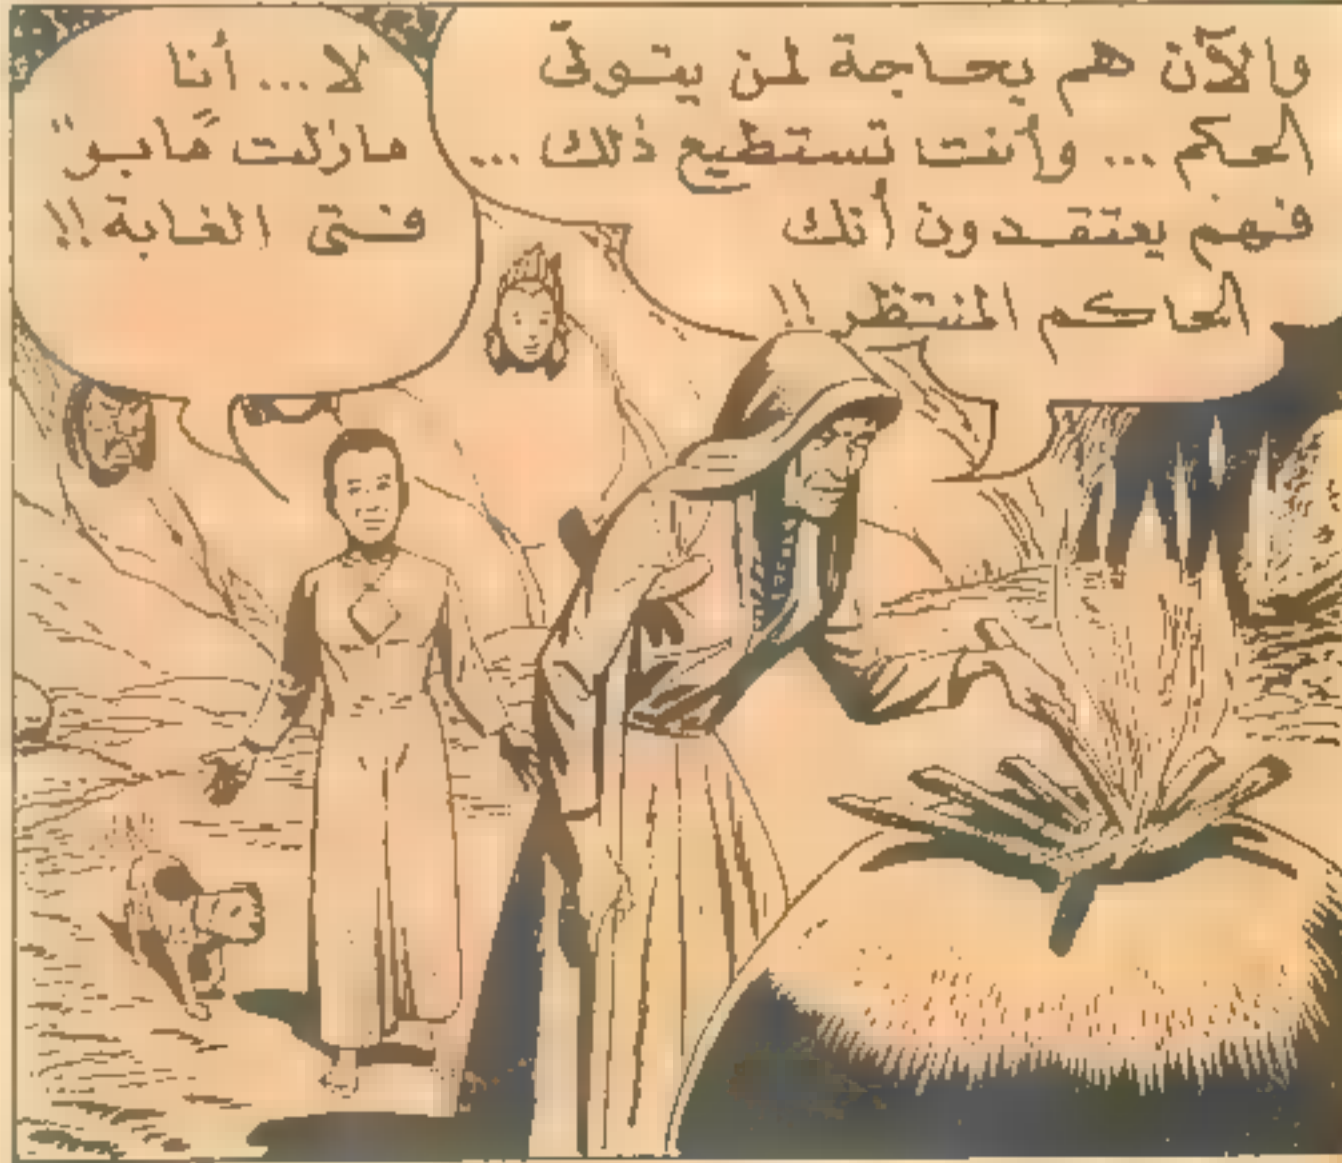 والآن هم بحاجة لمن يتولّى
الحكم ... وأنت تستطيع ذلك ...
فهم يعتقدون أنك
الحاكم المنتظر !!
لا ... أنا
مازلت "مابو"
فتى الغابة !!